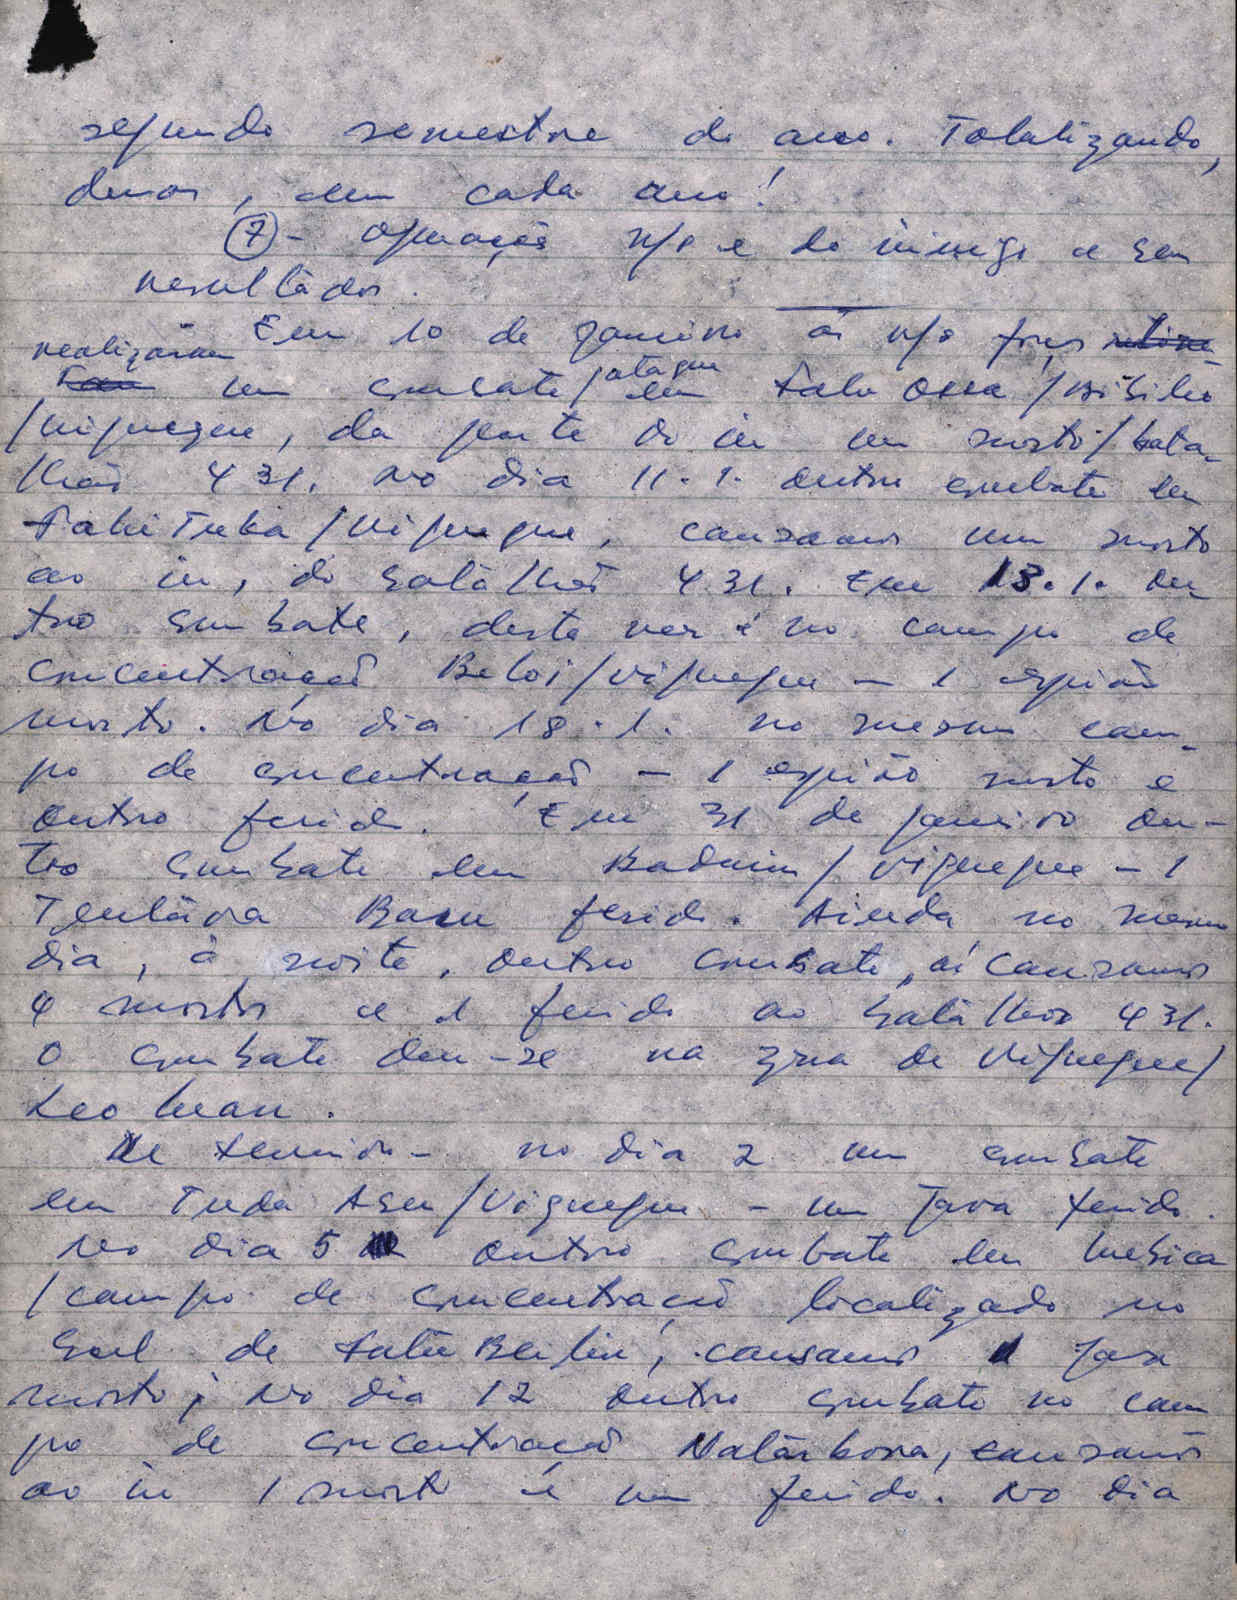 segundo semestre do ano. Totalizando,
duas, em cada ano!
⑦ - Operação n/s e do inimigo e seu
resultados.
Em 10 de Janeiro as n/s
realizaram
um combate/ataque em /Bibileo
/Viqueque, da parte do in um morto/bata-
lhão 431. No dia 11.1. outro combate em
/Viqueque, causamos um morto
ao in, do batalhão 431. Em 13.1. ou
tro combate, desta vez é no campo de
concentração Beloi/Viqueque - 1 espião
morto. No dia 18.1. no mesmo cam-
po de concentração - 1 espião morto e
outro ferido. Em 31 de Janeiro ou-
tro combate em /Viqueque - 1
ferido. Ainda no mesmo
dia, à noite, outro combate, aí causamos
4 mortos e 1 ferido ao batalhão 431.
O combate deu-se na zona de Viqueque/
no dia 2 um combate
em Tuda Asu/Viqueque - um Java ferido.
No dia 5 outro combate em
/campo de concentração localizado no
Sul de Fatu Berliu, causamos 1 Java
morto; No dia 12 outro combate no cam
po de concentração Natarbora, causamos
ao in 1 morto e um ferido. No dia